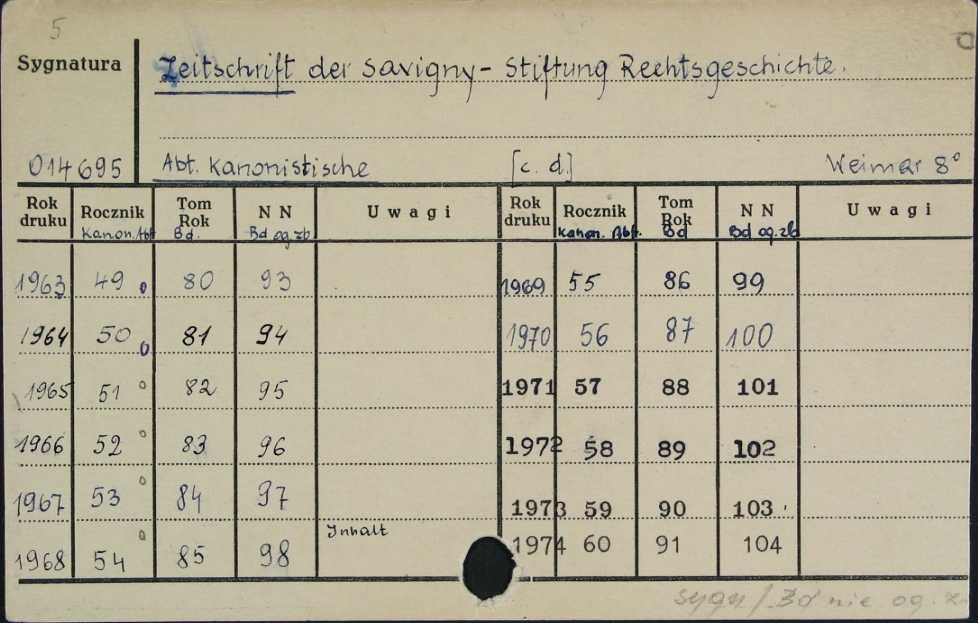 5
Sygnatura Zeitschrift der Savigny-Stiftung Rechtsgeschichte.
014695 Abt. Kanonistische [c. d.] Weimar 8°
Rok druku Rocznik Kanon. Abt Tom Rok Bd. N N Bd og. zb Uwagi Rok druku Rocznik Kanon. Abt. Tom Rok Bd N N Bd og. zb Uwagi
1963 49 80 93 1969 55 86 99
1964 50 81 94 1970 56 87 100
1965 51 82 95 1971 57 88 101
1966 52 83 96 1972 58 89 102
1967 53 84 97 1973 59 90 103
Inhalt
1968 54 85 98 1974 60 91 104
sygn / Bd nie og.